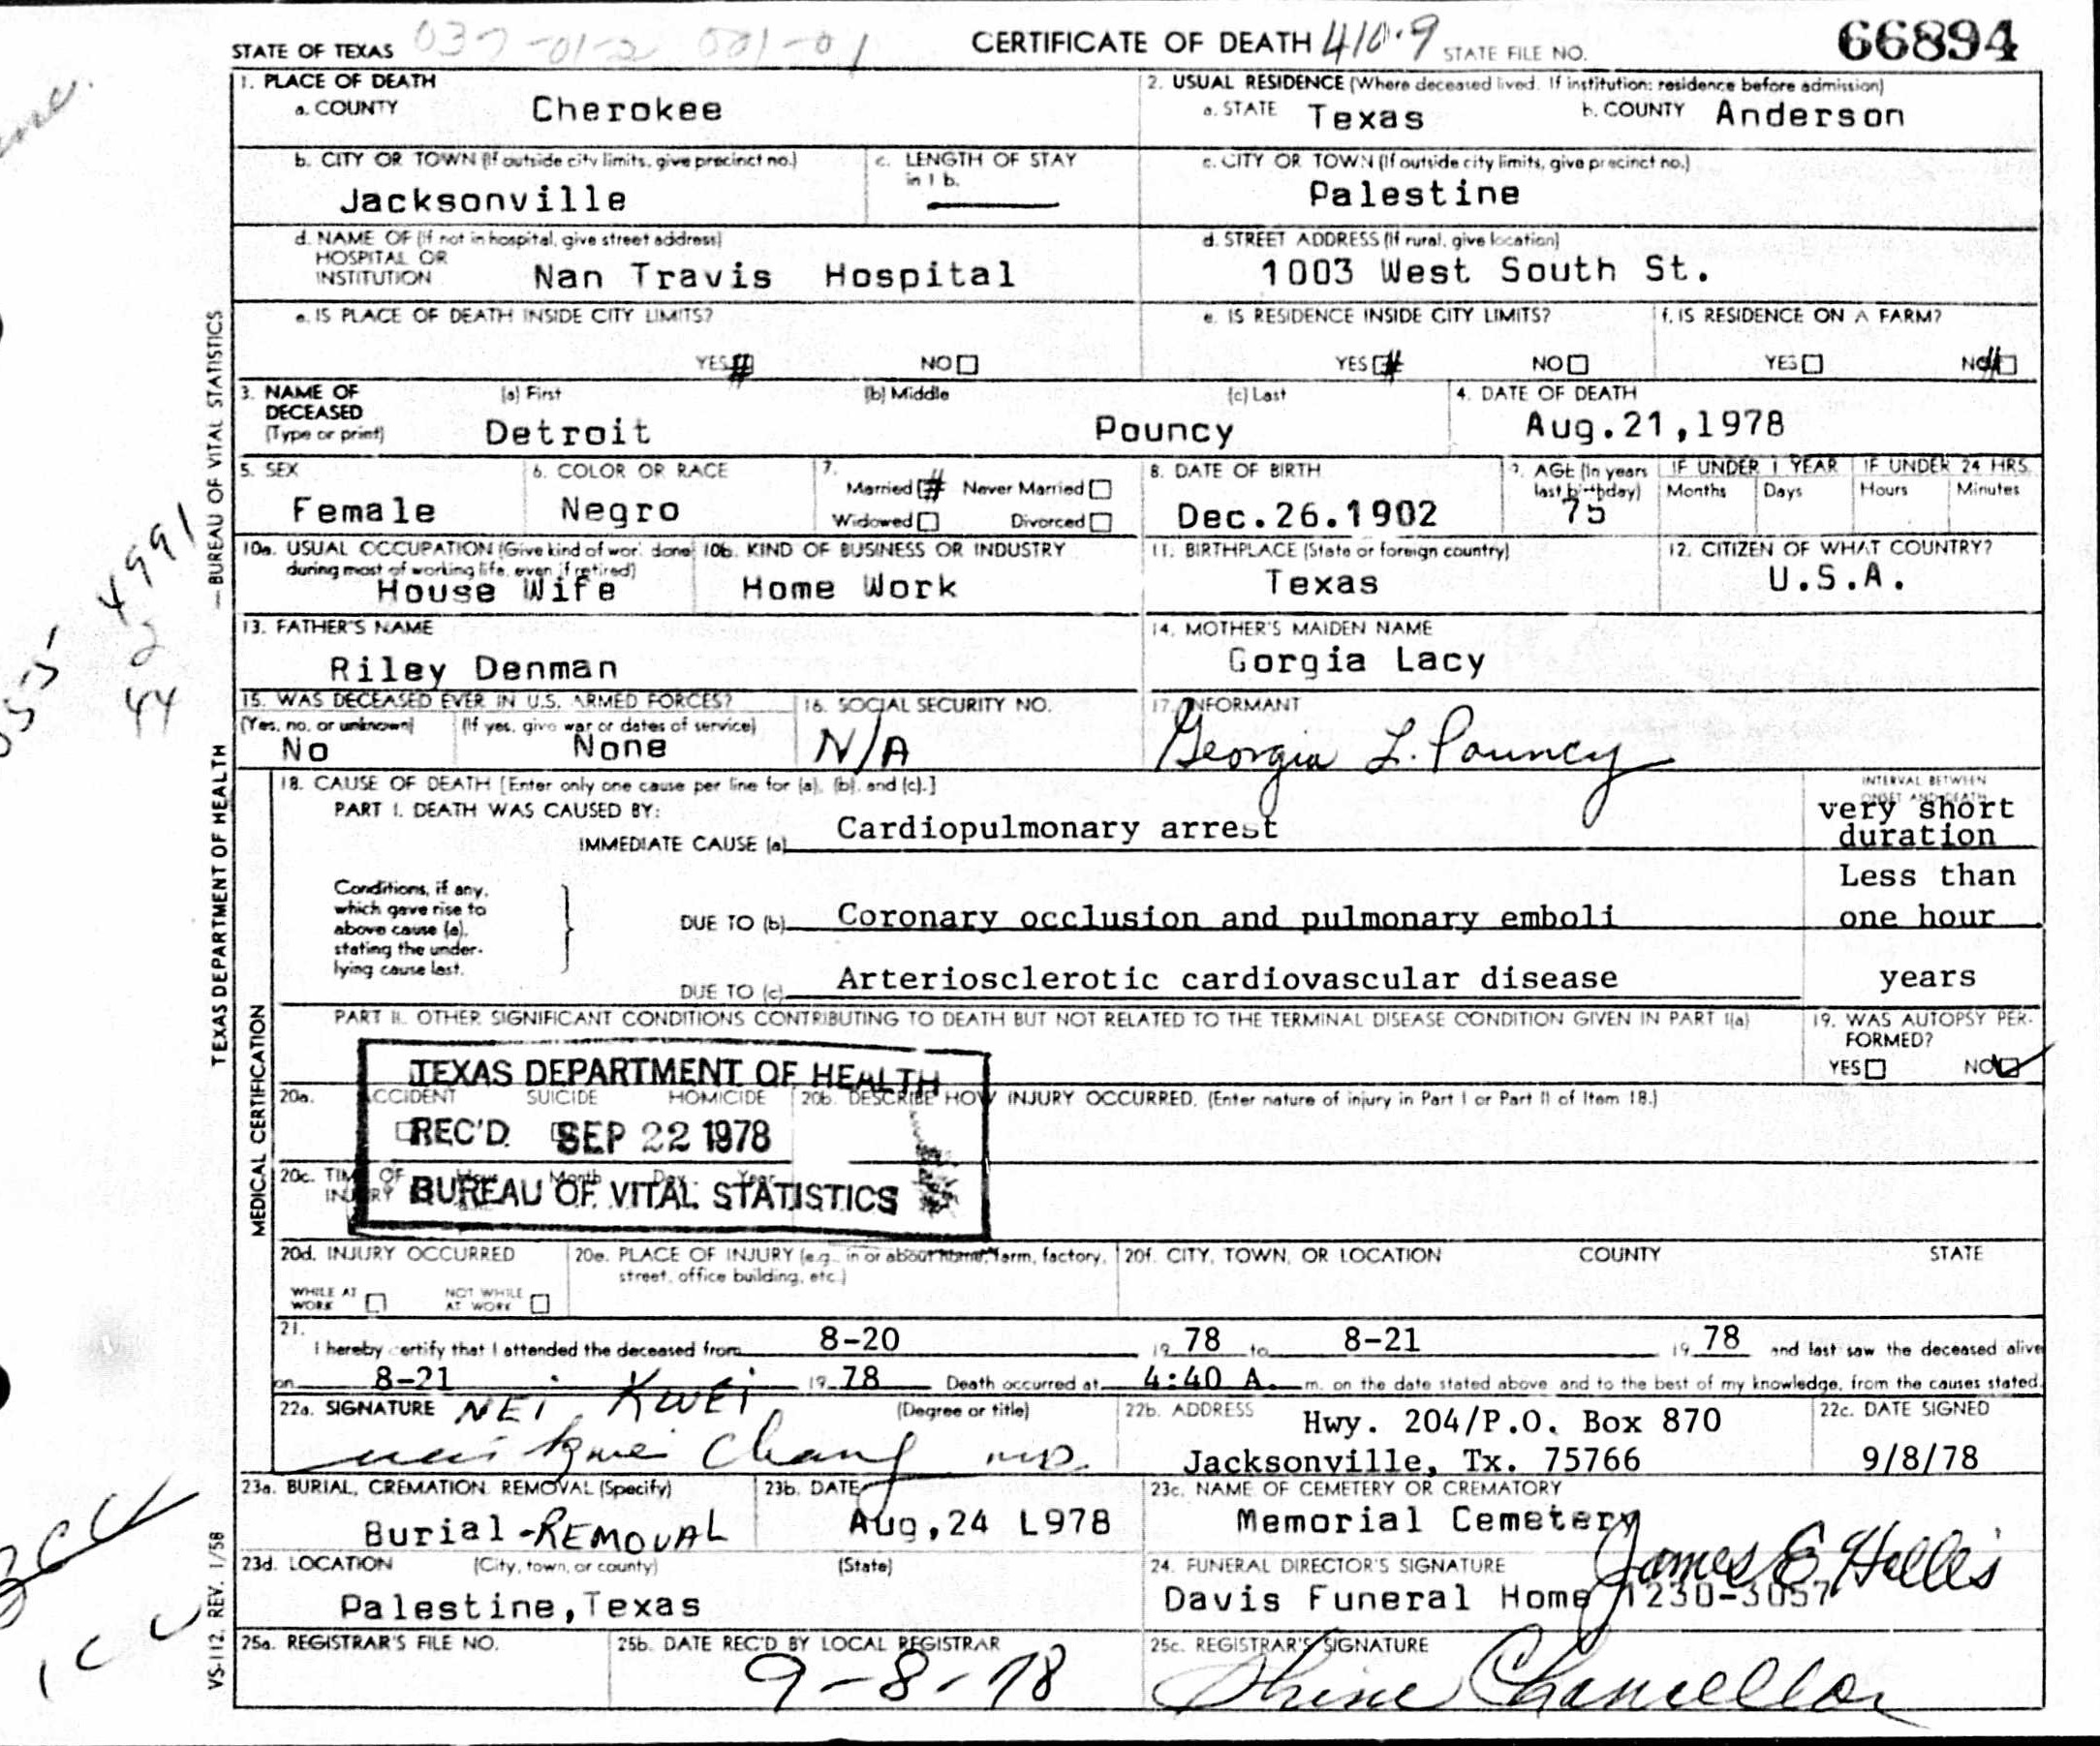 STATE OF TEXAS 037-01-2 001-01 CERTIFICATE OF DEATH 410.9 STATE FILE NO. 66894
1. PLACE OF DEATH
a. COUNTY Cherokee
2. USUAL RESIDENCE (Where deceased lived. If institution: residence before admission)
a. STATE Texas b. COUNTY Anderson
b. CITY OR TOWN (If outside city limits, give precinct no.)
Jacksonville
c. LENGTH OF STAY
in 1 b.
c. CITY OR TOWN (If outside city limits, give precinct no.)
Palestine
d. NAME OF (If not in hospital, give street address)
HOSPITAL OR
INSTITUTION Nan Travis Hospital
d. STREET ADDRESS (If rural, give location)
1003 West South St.
e. IS PLACE OF DEATH INSIDE CITY LIMITS?
YES # NO
e. IS RESIDENCE INSIDE CITY LIMITS?
YES # NO
f. IS RESIDENCE ON A FARM?
YES NO #
3. NAME OF DECEASED (Type or print)
(a) First (b) Middle (c) Last
Detroit Pouncy
4. DATE OF DEATH
Aug.21,1978
5. SEX
Female
6. COLOR OR RACE
Negro
7.
Married # Never Married
Widowed Divorced
8. DATE OF BIRTH
Dec.26.1902
9. AGE (In years
last birthday)
75
IF UNDER 1 YEAR
Months Days
IF UNDER 24 HRS.
Hours Minutes
10a. USUAL OCCUPATION (Give kind of work done
during most of working life, even if retired)
House Wife
10b. KIND OF BUSINESS OR INDUSTRY
Home Work
11. BIRTHPLACE (State or foreign country)
Texas
12. CITIZEN OF WHAT COUNTRY?
U.S.A.
13. FATHER'S NAME
Riley Denman
14. MOTHER'S MAIDEN NAME
Gorgia Lacy
15. WAS DECEASED EVER IN U.S. ARMED FORCES?
(Yes, no, or unknown) (If yes, give war or dates of service)
No None
16. SOCIAL SECURITY NO.
N/A
17. INFORMANT
Georgia L. Pouncy
18. CAUSE OF DEATH [Enter only one cause per line for (a), (b), and (c).]
PART I. DEATH WAS CAUSED BY:
IMMEDIATE CAUSE (a) Cardiopulmonary arrest
INTERVAL BETWEEN
ONSET AND DEATH
very short
duration
Conditions, if any,
which gave rise to
above cause (a),
stating the under-
lying cause last.
DUE TO (b) Coronary occlusion and pulmonary emboli
Less than
one hour
DUE TO (c) Arteriosclerotic cardiovascular disease
years
PART II. OTHER SIGNIFICANT CONDITIONS CONTRIBUTING TO DEATH BUT NOT RELATED TO THE TERMINAL DISEASE CONDITION GIVEN IN PART I(a)
19. WAS AUTOPSY PER-
FORMED?
YES NO
TEXAS DEPARTMENT OF HEALTH
REC'D. SEP 22 1978
BUREAU OF VITAL STATISTICS
20a. ACCIDENT SUICIDE HOMICIDE
20b. DESCRIBE HOW INJURY OCCURRED. (Enter nature of injury in Part I or Part II of Item 18.)
20c. TIME OF
INJURY
Hour Month Day Year
20d. INJURY OCCURRED
WHILE AT
WORK
NOT WHILE
AT WORK
20e. PLACE OF INJURY (e.g., in or about home, farm, factory,
street, office building, etc.)
20f. CITY, TOWN, OR LOCATION COUNTY STATE
21.
I hereby certify that I attended the deceased from 8-20 19 78 to 8-21 19 78 and last saw the deceased alive
on 8-21 19 78 Death occurred at 4:40 A. m. on the date stated above, and to the best of my knowledge, from the causes stated.
22a. SIGNATURE NEI KWEI (Degree or title)
nei kwei Chang MD.
22b. ADDRESS
Hwy. 204/P.O. Box 870
Jacksonville, Tx. 75766
22c. DATE SIGNED
9/8/78
23a. BURIAL, CREMATION REMOVAL (Specify)
Burial-REMOVAL
23b. DATE
Aug,24 L978
23c. NAME OF CEMETERY OR CREMATORY
Memorial Cemetery
23d. LOCATION (City, town, or county) (State)
Palestine,Texas
24. FUNERAL DIRECTOR'S SIGNATURE
James E Hollis
Davis Funeral Home 1230-3057
25a. REGISTRAR'S FILE NO.
25b. DATE REC'D BY LOCAL REGISTRAR
9-8-78
25c. REGISTRAR'S SIGNATURE
Chancellor
BUREAU OF VITAL STATISTICS
TEXAS DEPARTMENT OF HEALTH
MEDICAL CERTIFICATION
VS-112, REV. 1/58